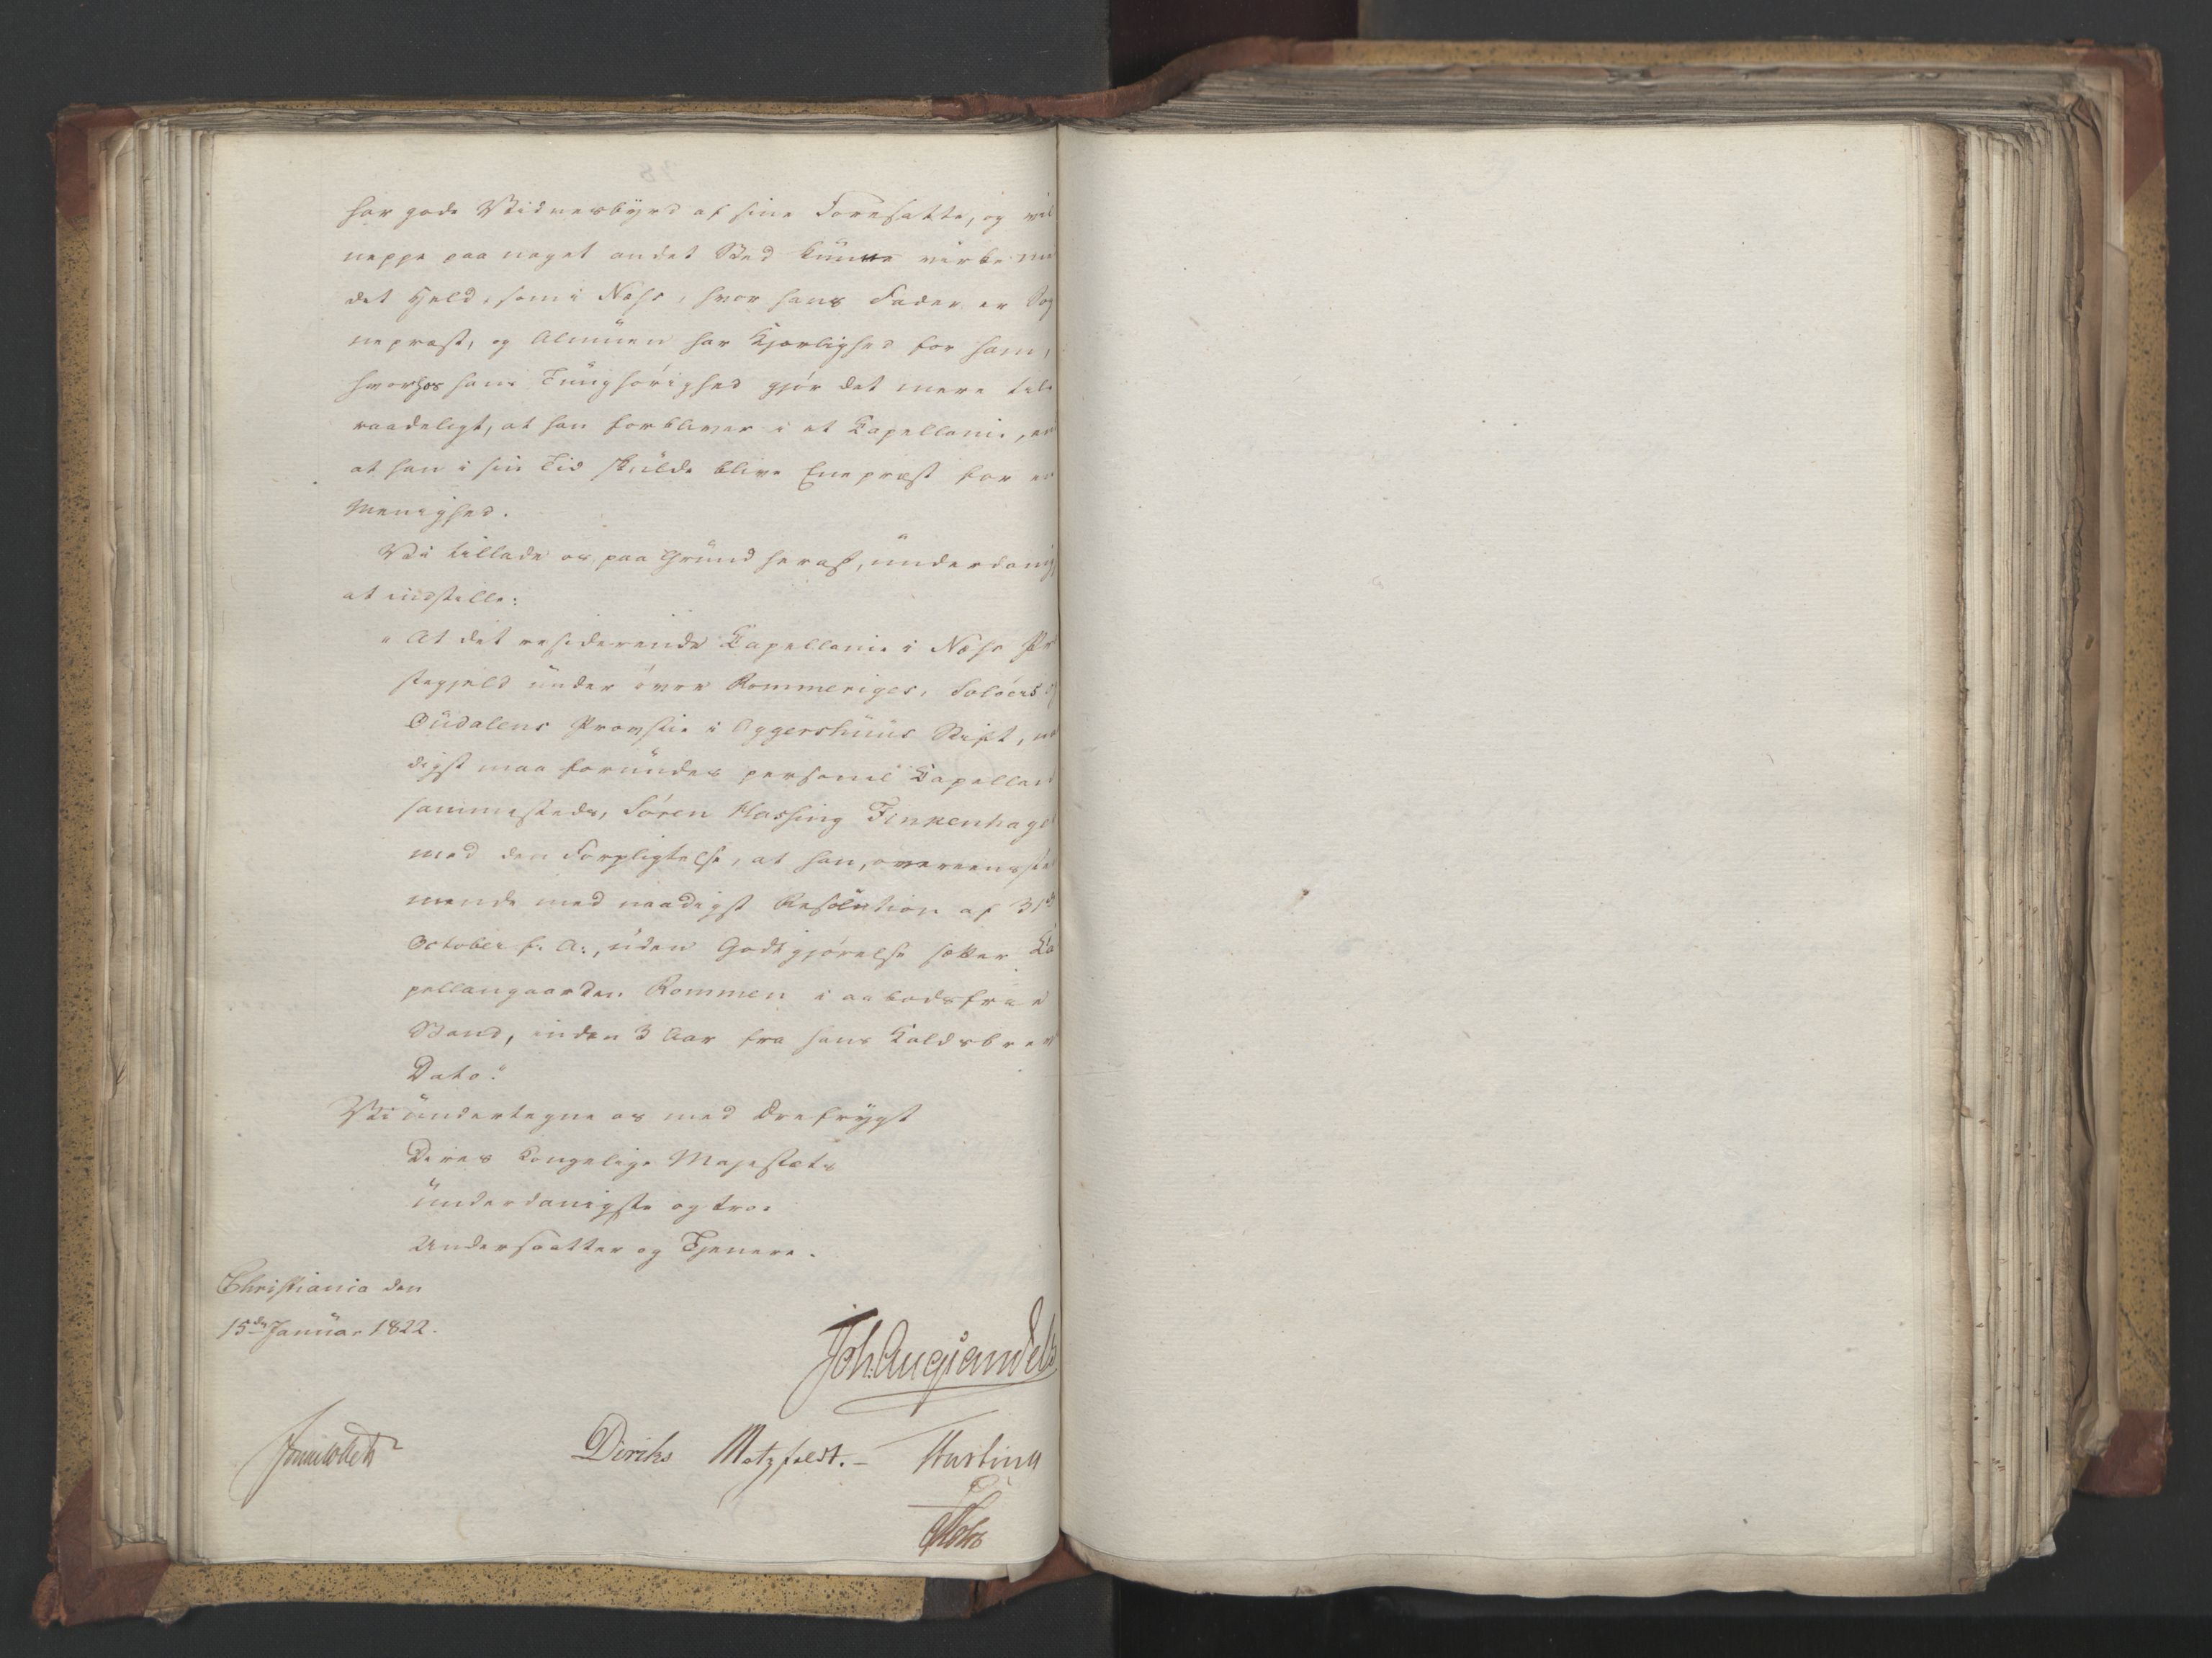 har gode Vidnesbyrd af sine Foresatte, og vil
neppe paa noget andet Sted kunne virke m
det Held, som i Næss, hvor hans Fader er Sog
nepræst, og Almuen har Kjærlighed for ham,
hvorhos hans Tunghørighed gjør det mere til
raadeligt, at han forbliver i et Capellanie, en
at han i sin Tid skulde blive Enepræst for en
Menighed.
Vi tillade os, paa Grund heraf, underdanig
at indstille:
"At det residerende Capellanie i Næss Præ
stegjeld under övre Rommeriges, Soløers og
Oudalens Provstie i Aggershuus Stift, naa
digst maa forundes personel Capellan
sammesteds, Sören Hassing Finkenhagen
med den Forpligtelse, at han, overeensstem
mende med naadigst Resolution af 31te
October f. A., uden Godtgjörelse sætter Ca
pellangaarden Rommen i aabodsfrie
Stand, inden 3 Aar fra hans Kaldsbrevs
Dato."
Vi undertegne os med Ærefrygt
Deres Kongelige Majestæts
underdanigste og troe
Undersaatter og Tjenere.
Christiania den
15de Januar 1822.
Joh. Aug. Sandels
Sommerhielm Diriks Motzfeldt. Fasting
Holst